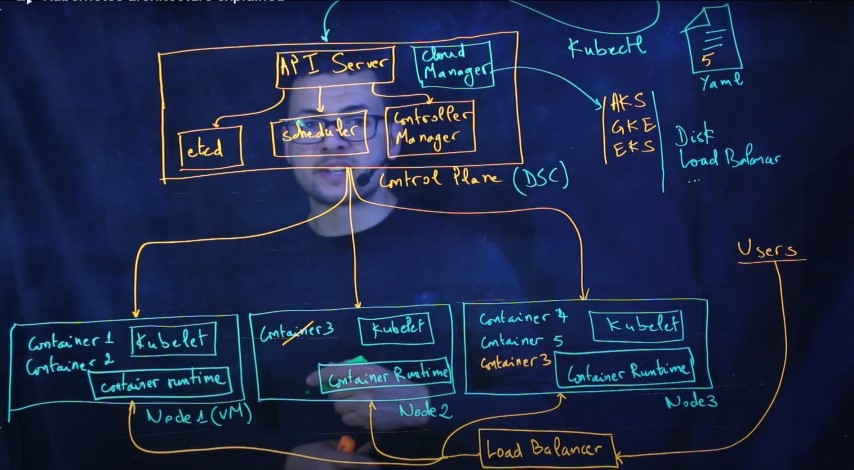 Kubernetes architecture explained
Kubectl
5
Yaml
API Server
Cloud
Manager
etcd
scheduler
Controller
Manager
Control Plane (DSC)
AKS
GKE
EKS
Disk
Load Balancer
...
Users
Container 1
Container 2
Kubelet
container runtime
Node 1 (VM)
Container 3
Kubelet
Container Runtime
Node 2
Container 4
Container 5
Container 3
Kubelet
Container Runtime
Node 3
Load Balancer